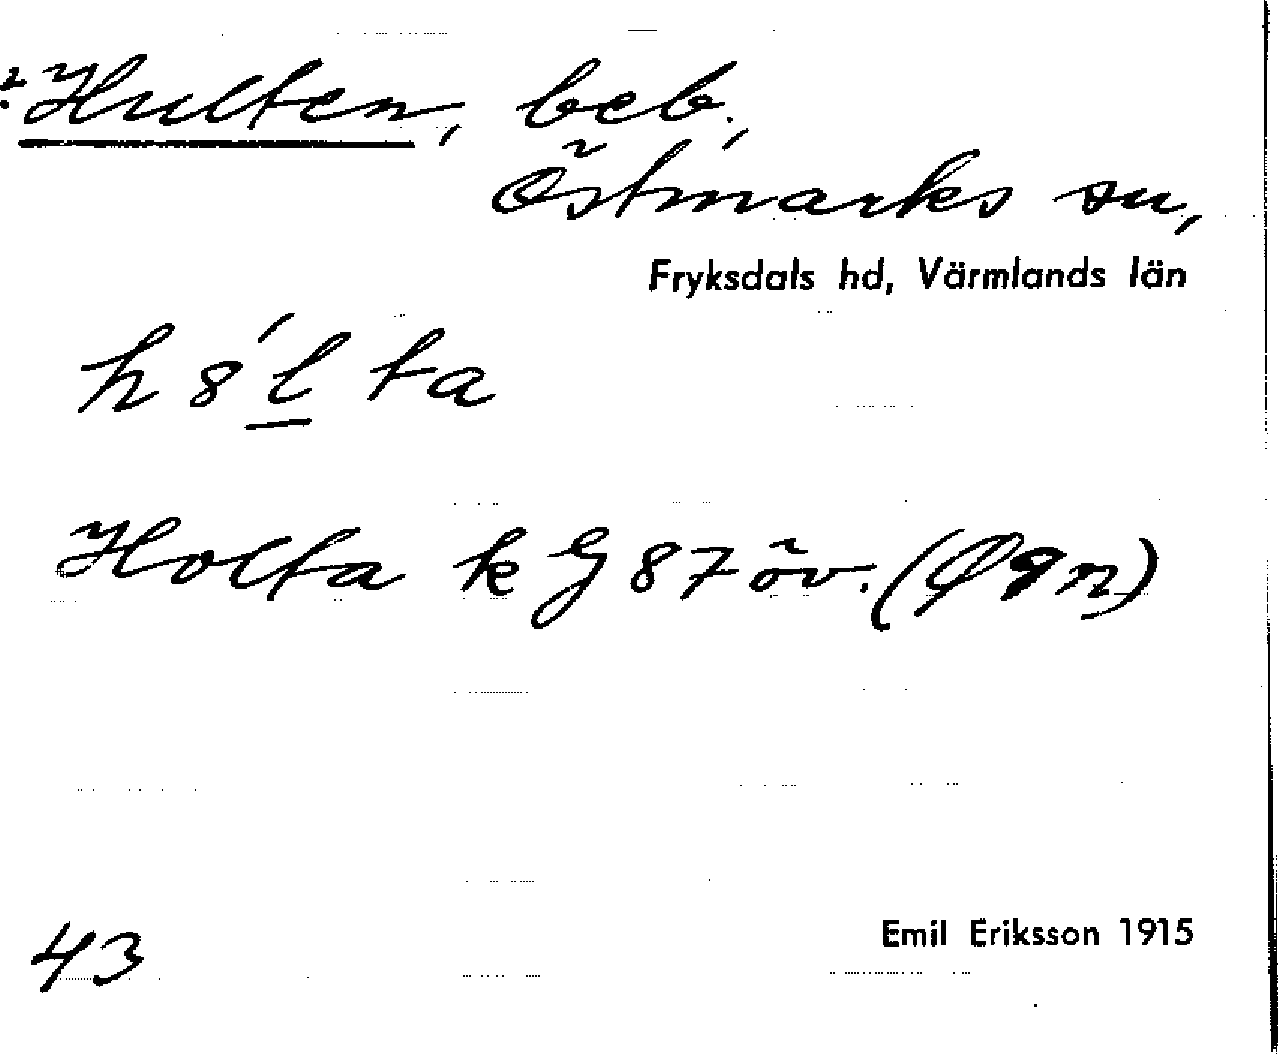 ? Hulten, beb.,
Östmarks sn,
Fryksdals hd, Värmlands län
h8´l ta
Holta k G 87 öv.
43
Emil Eriksson 1915